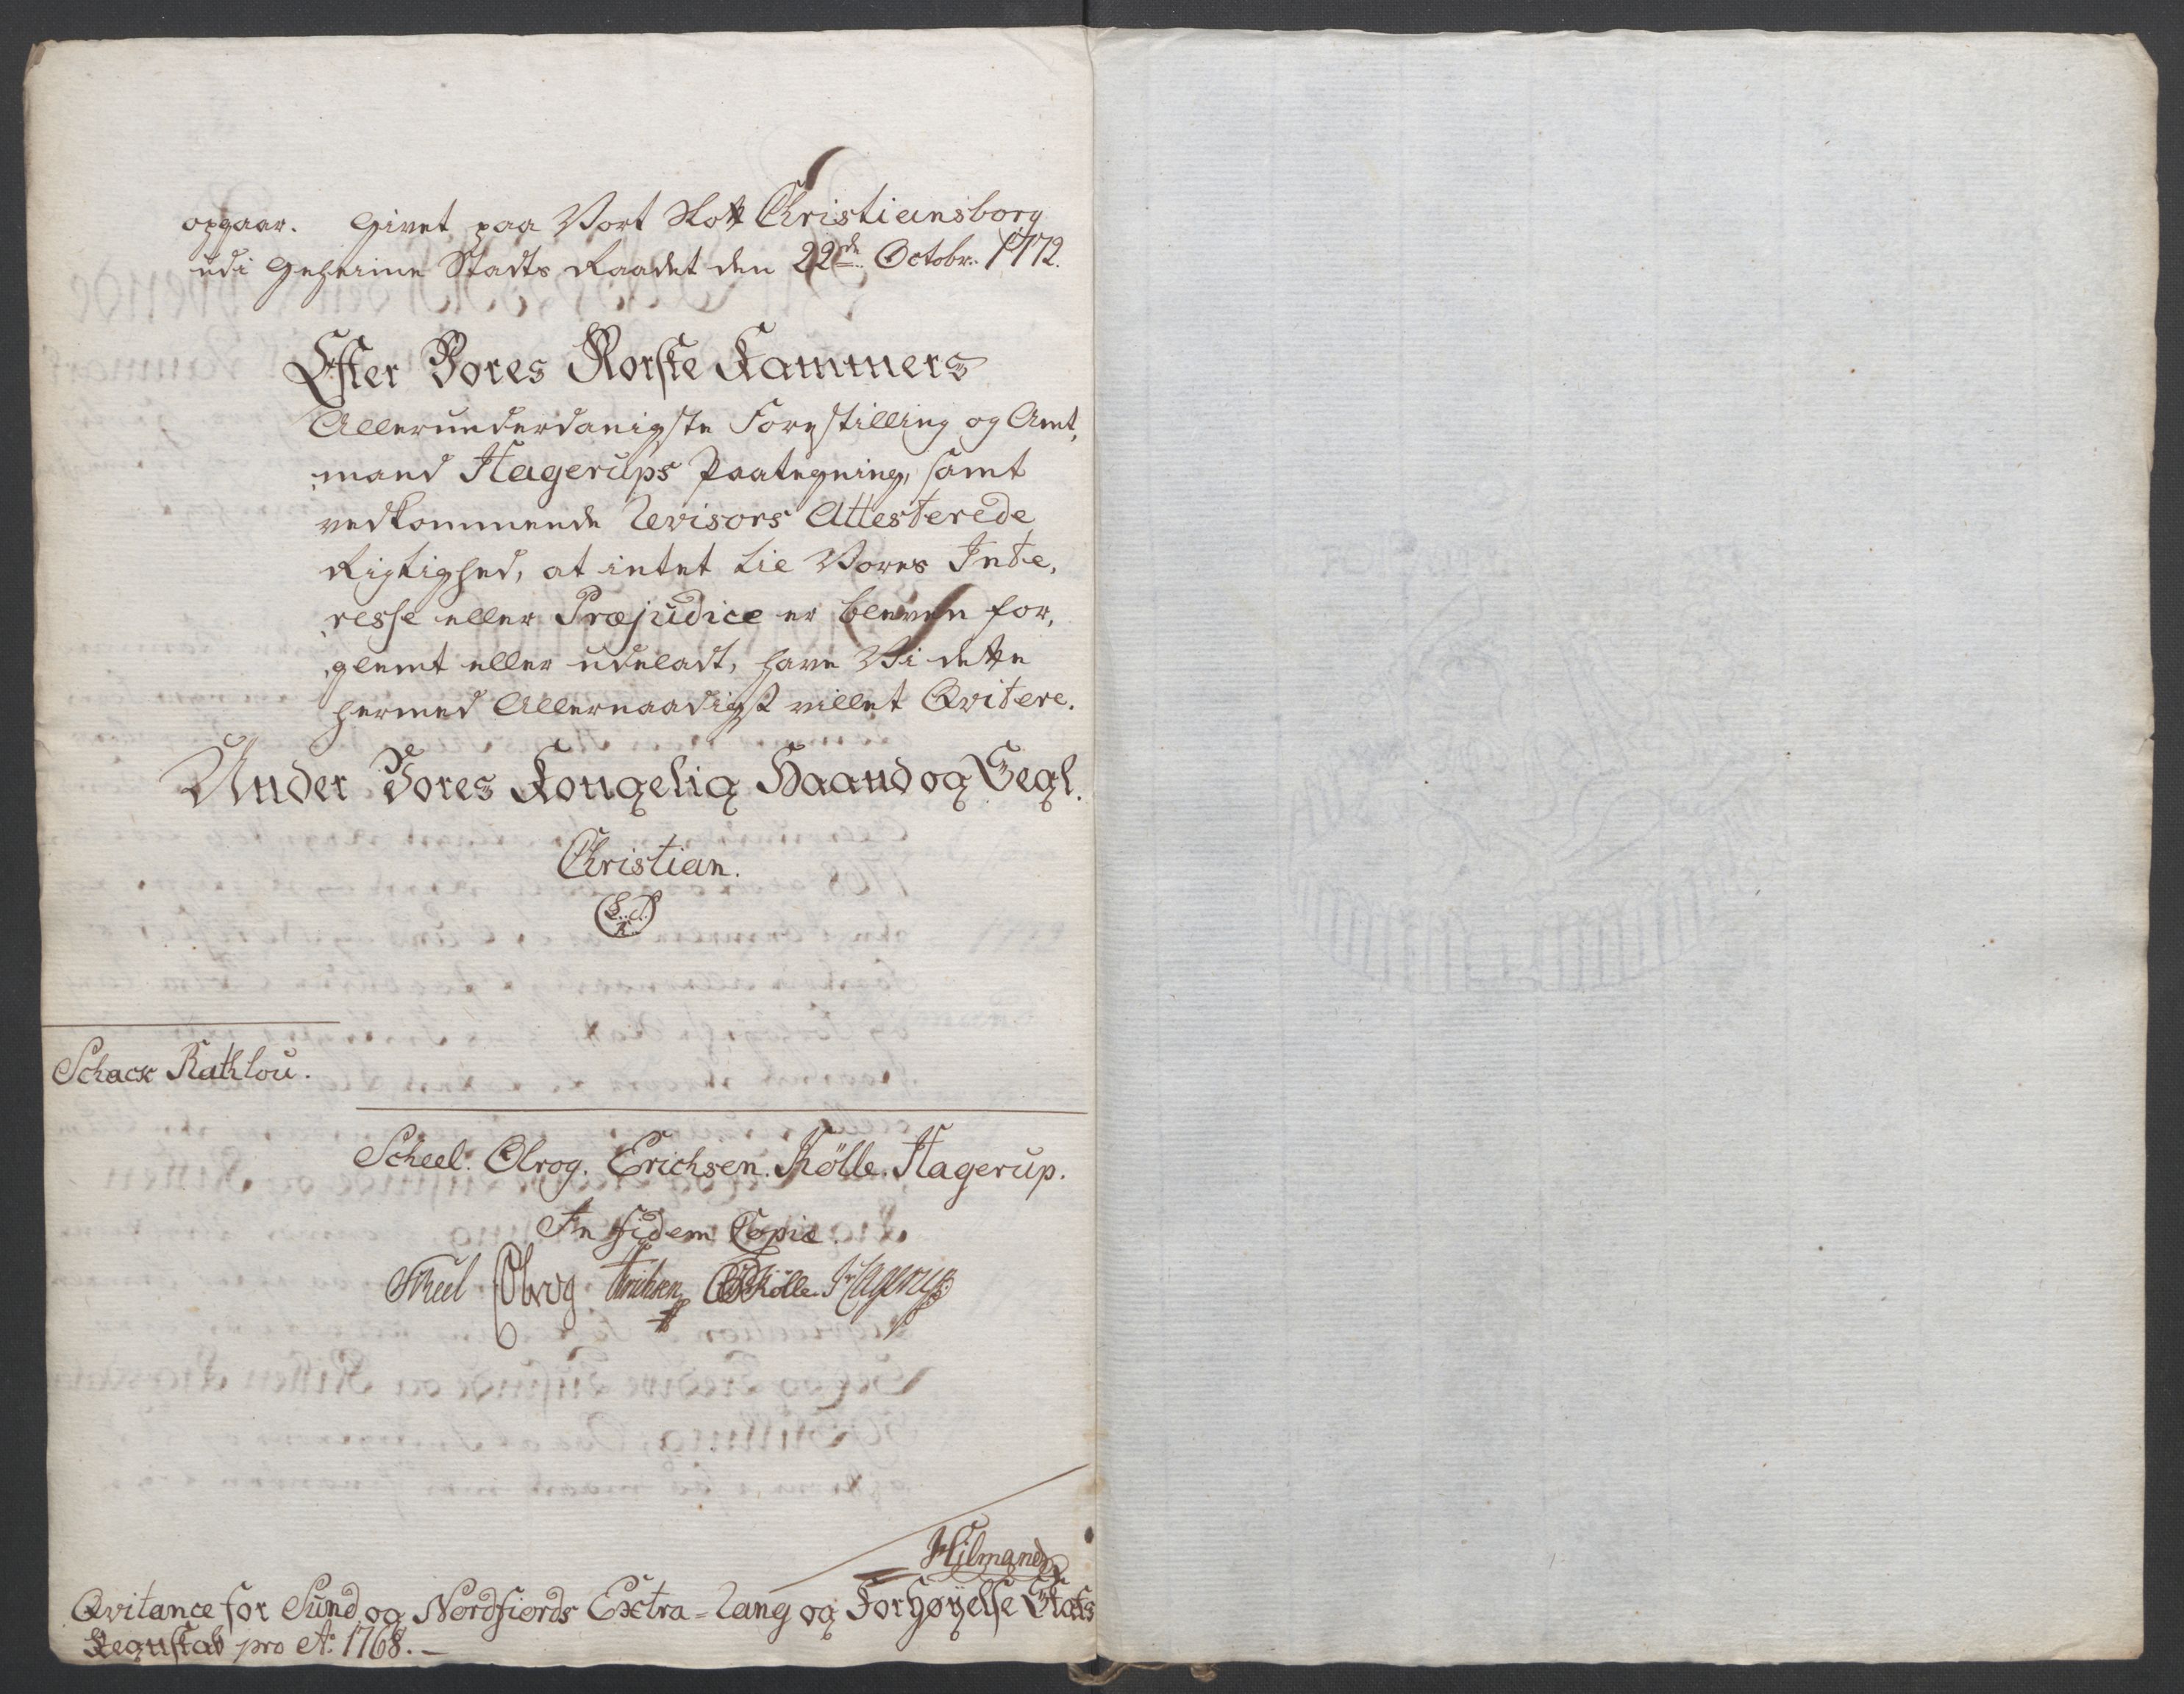 opgaar. Givet paa Vort Slott Christiansborg
udi Geheime Stadts Raadet den 22de Octobr. 1772.
Efter Vores Norske Kammers
Allerunderdanigste Forestilling og Amt,
mand Hagerups Paategning, samt
vedkommende Revisors Attesterede
Rigtighed, at intet tie Vores Inte,
resse eller Præjudice er bleven for,
glemt eller udeladt, have Vi dette
hermed Allernaadigst villet Qvitere.
Under Vores Kongelig Haand og Segl.
Christian.
(L. S.
R.)
Schack Rathlou.
Scheel. Olrog. Erichsen. Kölle. Hagerup.
In fidem Copie.
Scheel Olrog Erichsen Kölle. Hagerup
Hilmand
Qvitance for Sund og Nordfiords Extra=Rang og Forhøyelse Skats
Regnskab pro Ao. 1768. —